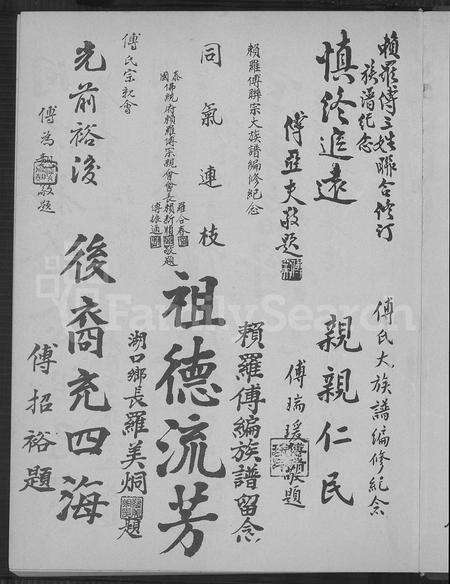 賴羅傅三姓聯合修訂
族譜紀念
慎終追遠
傅亞夫敬題
傅氏大族譜編修紀念
親親仁民
傅瑞瑗敬題
賴羅傅聯宗大族譜編修紀念
同氣連枝
泰國佛統府賴羅傅宗親會會長賴新順
羅谷春
傅振遜
敬題
賴羅傅編族譜留念
祖德流芳
湖口鄉長羅美烔題
傅氏宗親會
光前裕後
傅為敬題
後裔充四海
傅招裕題
FamilySearch